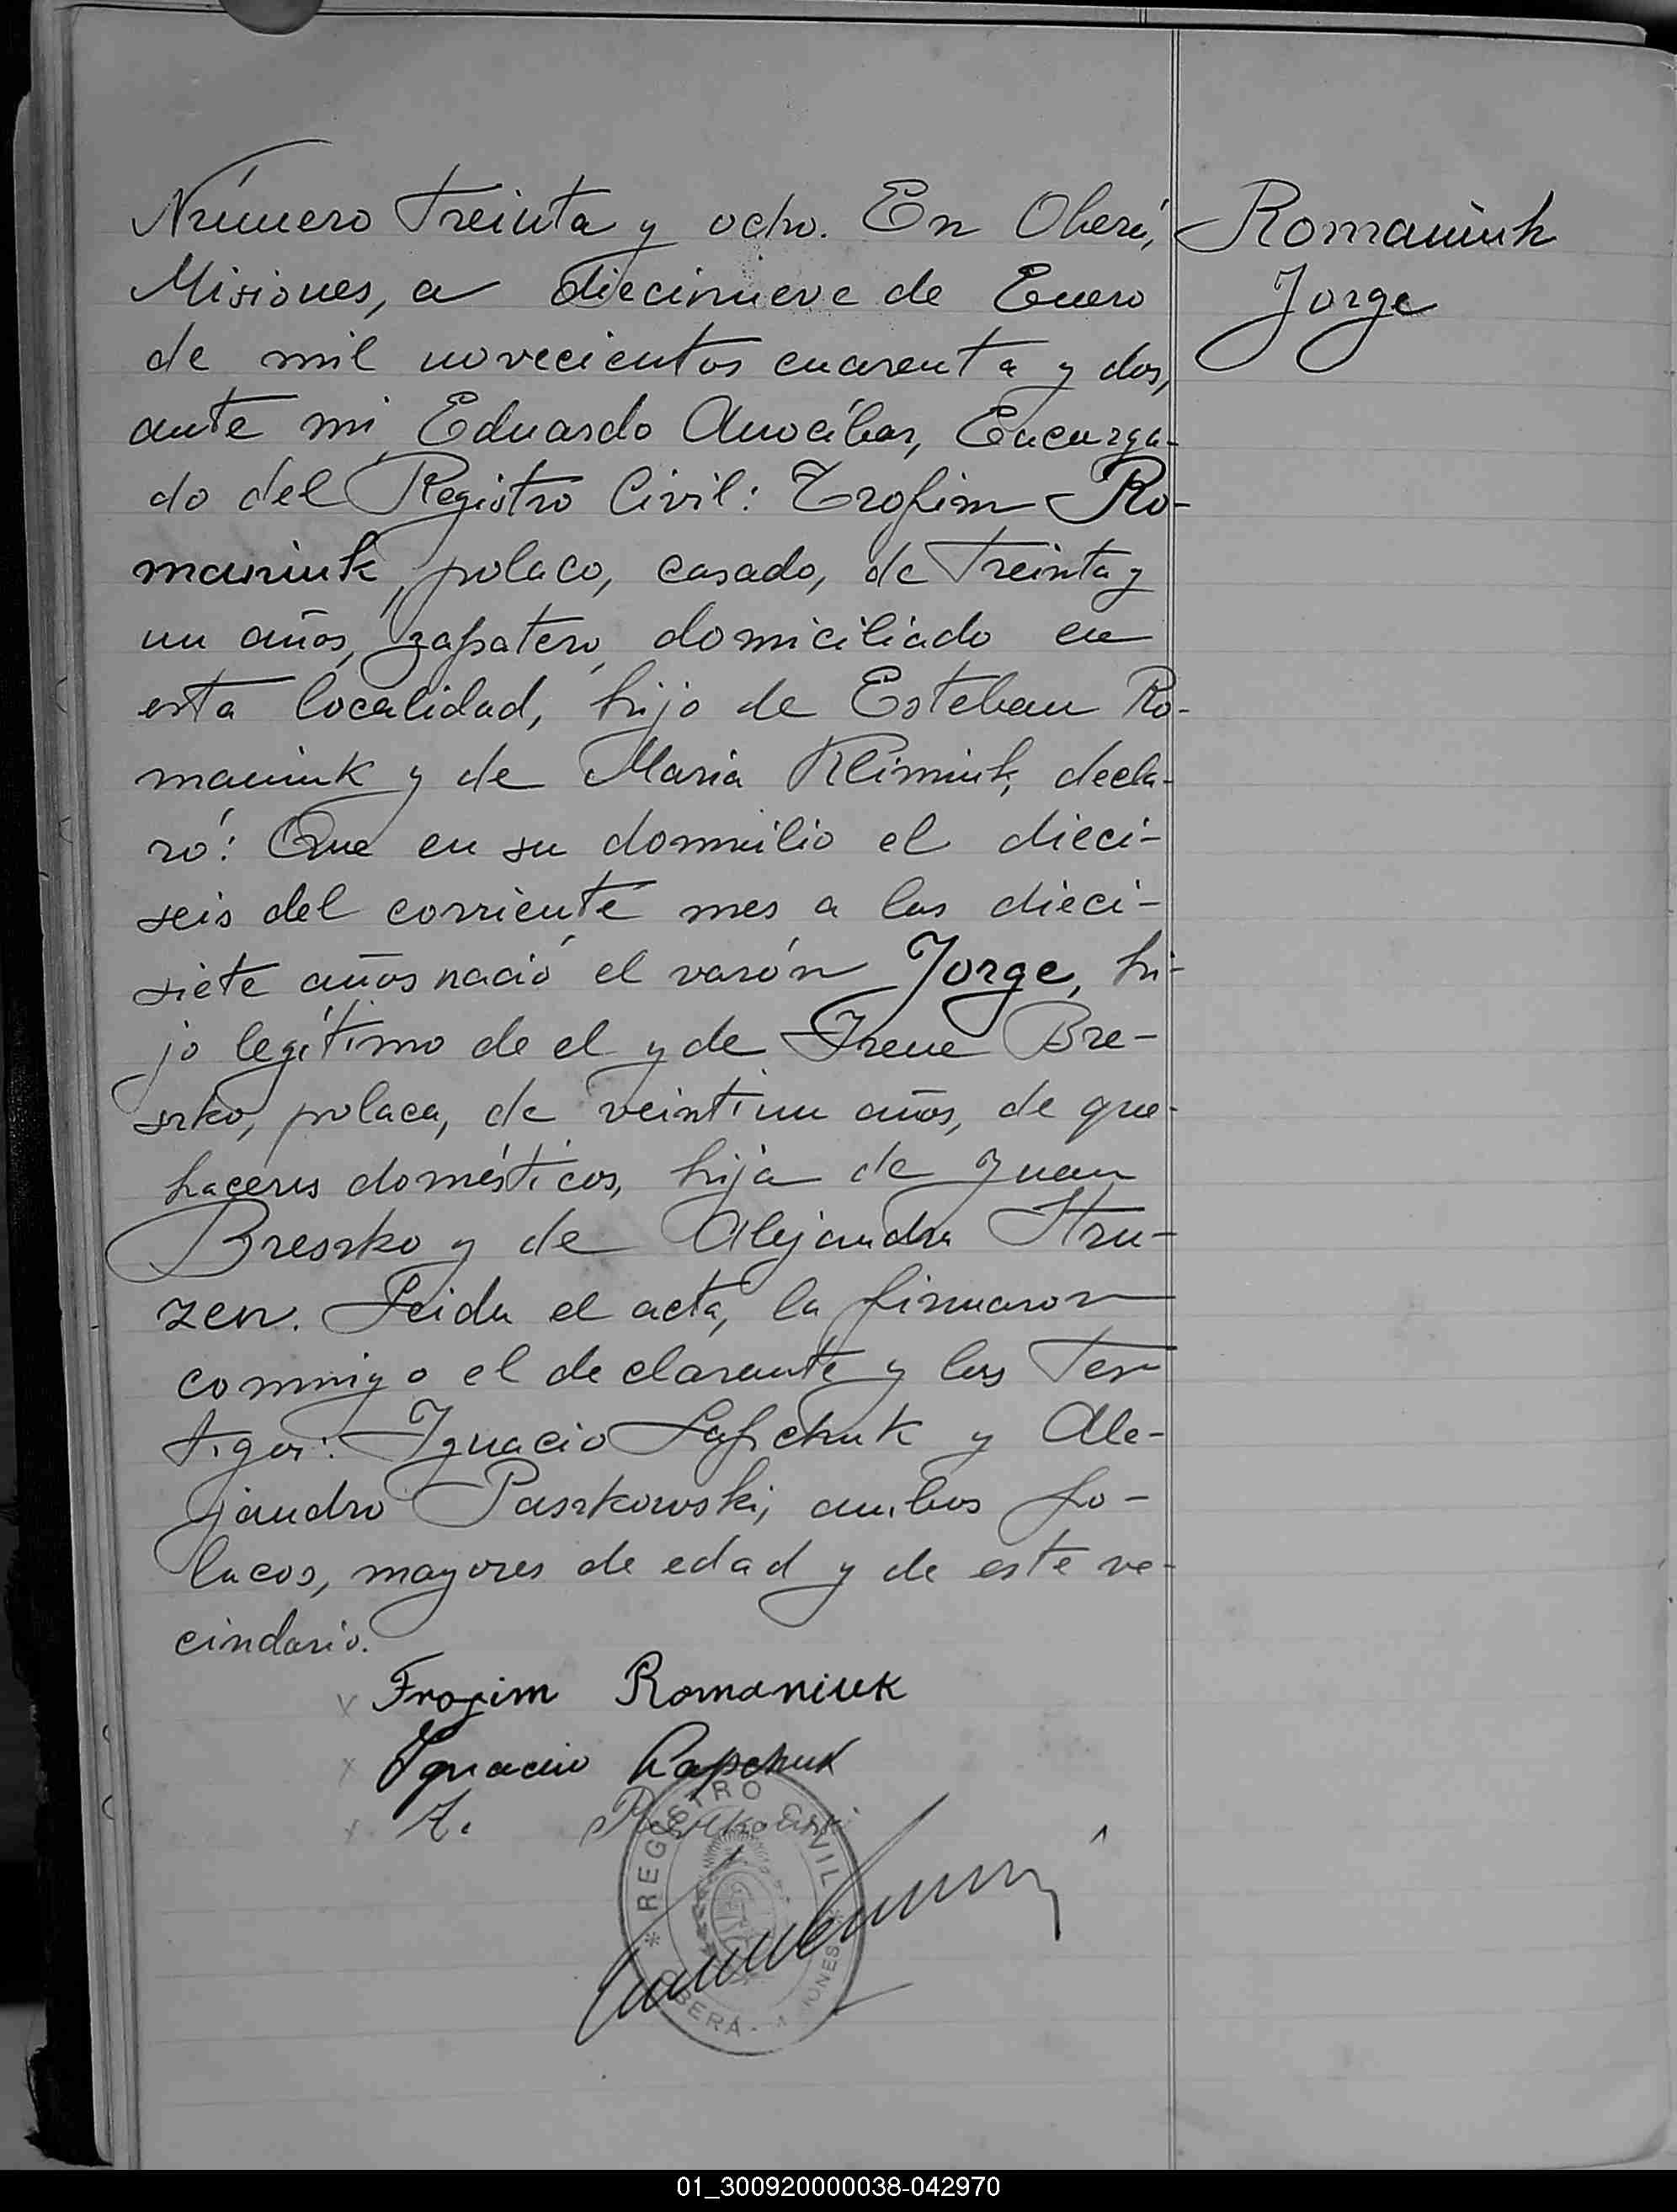 Número treinta y ocho. En Oberá,
Romaniuk
Jorge
Misiones, a diecinueve de Enero
de mil novecientos cuarenta y dos,
ante mi, Eduardo Anocíbar, Encarga-
do del Registro Civil: Trofim Ro-
maniuk, polaco, casado, de treinta y
un años, zapatero, domiciliado en
esta localidad, hijo de Esteban Ro-
maniuk y de Maria Klimiuk, decla-
ró: Que en su domicilio el dieci-
seis del corriente mes a las dieci-
siete años nació el varón Jorge, hi-
jo legítimo de el y de Irene Bre-
szko, polaca, de veintiun años, de que-
haceres domésticos, hija de Juan
Breszko y de Alejandra Stru-
zen. Leida el acta, la firmaron
conmigo el declarante y los tes
tigos: Ignacio Lapchuk y Ale-
jandro Paszkowski, ambos po-
lacos, mayores de edad y de este ve-
cindario.
Trofim Romaniuk
Ignacio Lapchuk
A.
REGISTRO CIVIL
OBERÁ - MISIONES
01_300920000038-042970